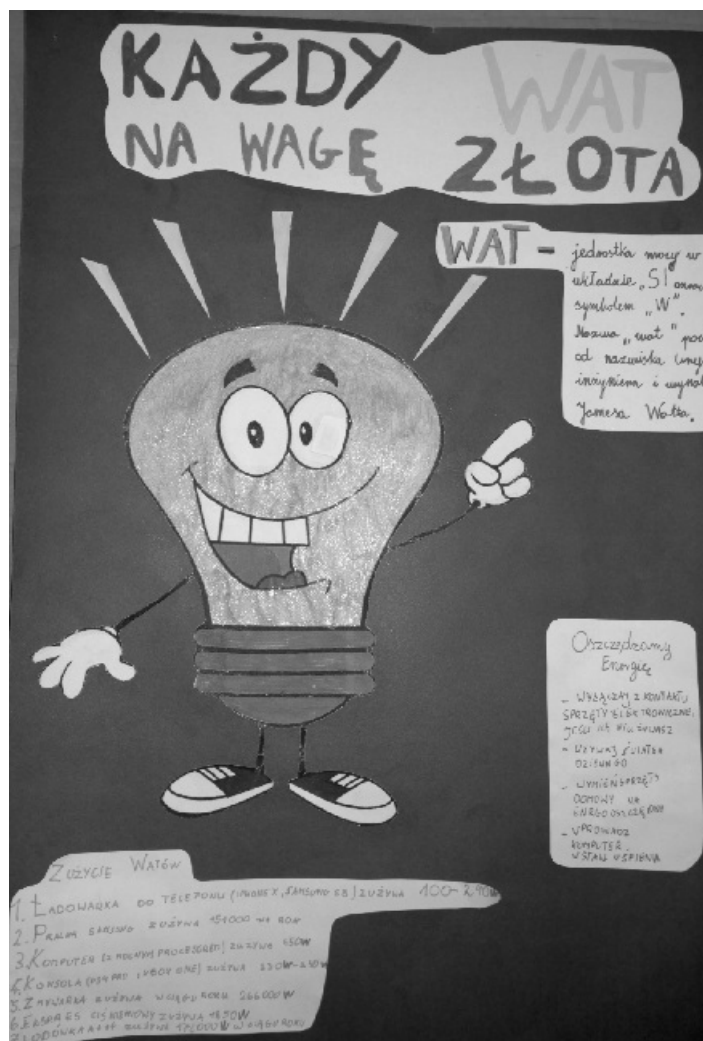 KAŻDY WAT
NA WAGĘ ZŁOTA
WAT - jednostka mocy w
układzie „SI
symbolem „W".
Nazwa „wat"
od nazwiska
inżyniera i
Jamesa Watta.
Oszczędzamy
Energię
- WYŁĄCZAJ Z KONTAKTU
SPRZĘTY ELEKTRONICZNE,
JEŚLI ICH NIE UŻYWASZ
- UŻYWAJ ŚWIATŁA
DZIENNEGO
- WYMIEŃ SPRZĘT
DOMOWY NA
ENERGOOSZCZĘDNY
- WPROWADŹ
KOMPUTER
W STAN UŚPIENIA
ZUŻYCIE WATÓW
1. ŁADOWARKA DO TELEFONU (IPHONE X, SAMSUNG S8) ZUŻYWA
2. PRALKA ZUŻYWA NA ROK
3. KOMPUTER (Z MOCNYM PROCESOREM) ZUŻYWA 450W
4. KONSOLA (PS4 PRO I XBOX ONE) ZUŻYWA
5. ZMYWARKA ZUŻYWA W CIĄGU ROKU 266000W
6. EKSPRES CIŚNIENIOWY ZUŻYWA
7. LODÓWKA ZUŻYWA W CIĄGU ROKU